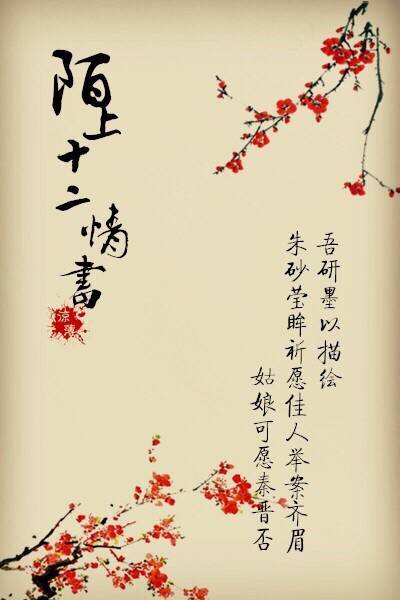 陌上十二情書
涼薄
吾研墨以描绘
朱砂莹眸祈愿佳人举案齐眉
姑娘可愿秦晋否